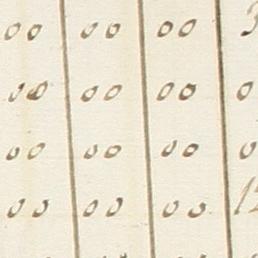 00 00 00 3
00 00 00 0
00 00 00 0
00 00 00 12